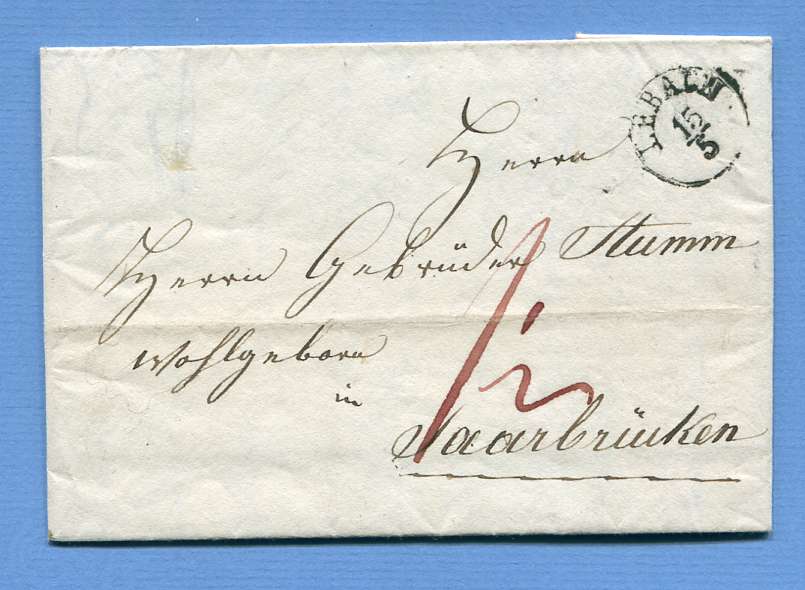 LEBACH
15/5
Herrn
Herren Gebrüder Stumm
Wohlgeboren
in
Saarbrücken